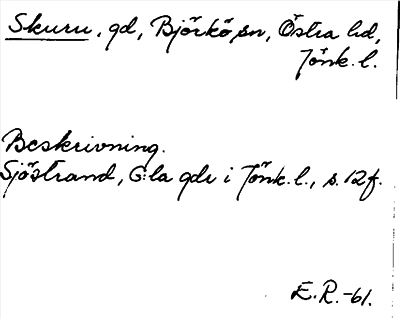 Skuru, gd, Björkö sn, Östra hd,
Jönk. l.
Beskrivning.
Sjöstrand, G:la gdr i Jönk. l., s. 12 f.
E.R. -61.